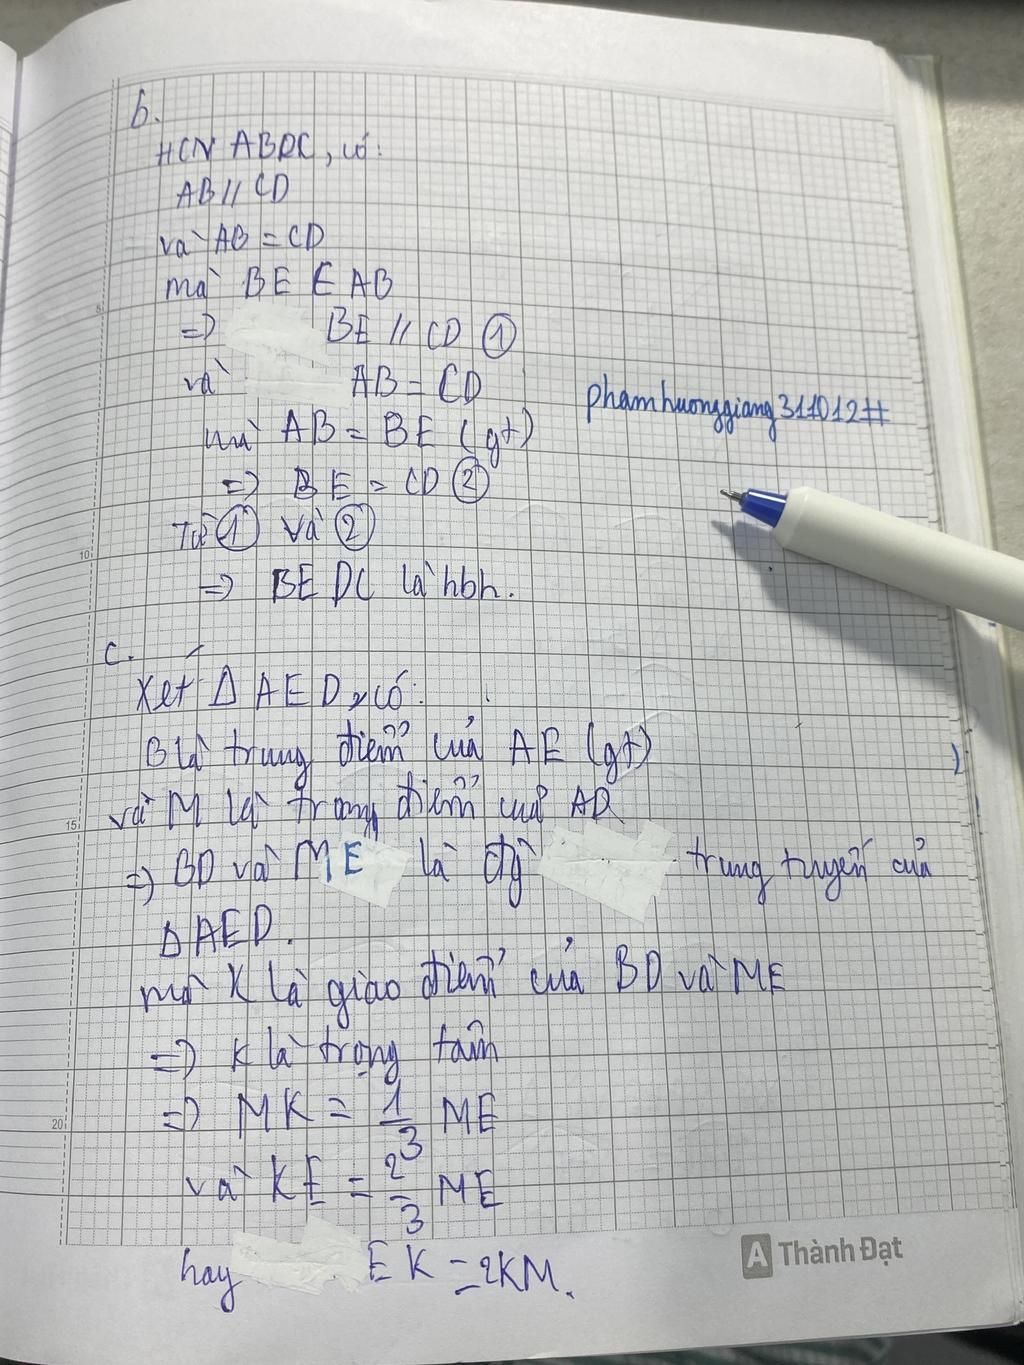 b.
HCN ABDC, có:
AB // CD
và AB = CD
mà BE ∈ AB
=> BE // CD ①
và AB = CD
mà AB = BE (gt)
=> BE = CD ②
Từ ① và ②
=> BEDC là hbh.
c.
Xét Δ AED, có:
B là trung điểm của AE (gt)
và M là trung điểm của AD
=> BD và ME là đg trung tuyến của
Δ AED.
mà K là giao điểm của BD và ME
=> K là trọng tâm
=> MK = 1/3 ME
và KE = 2/3 ME
hay EK = 2KM.
phamhuonggiang311012#
5
10
15
20
A Thành Đạt